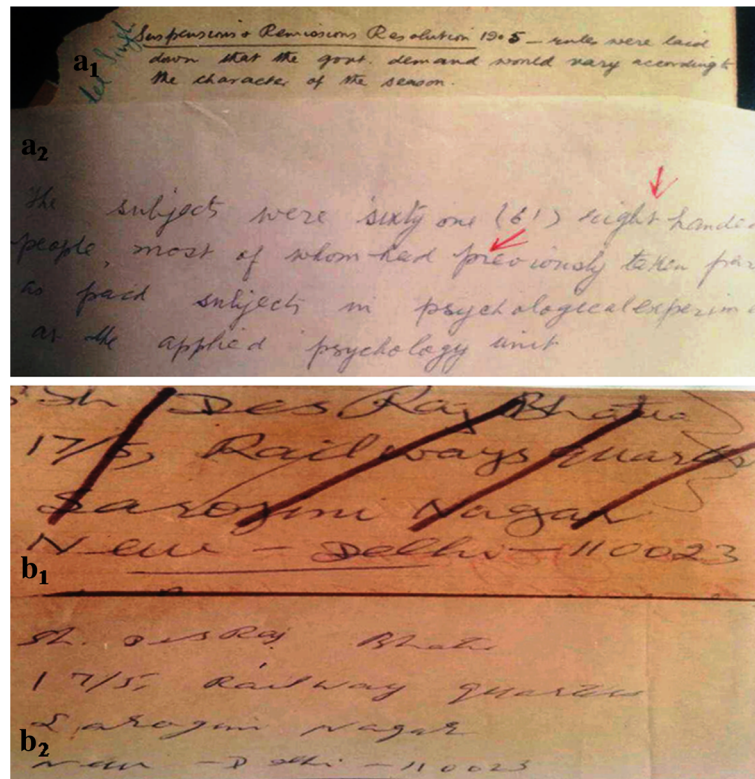 Suspensions & Remissions Resolution 1905 – rules were laid
a1
down that the govt. demand would vary according to
the character of the season.
a2
The subjects were sixty one (61) right hande
people, most of whom had previously taken par
as paid subjects in psychological experim
at the applied psychology unit
Sh. Des Raj Bhatia
17/5, Railways quarte
Sarojini Nagar
New - Delhi - 110023
b1
Sh. Des Raj Bhatia
17/5, Railway quarter
Sarojini Nagar
b2
New - Delhi - 110023